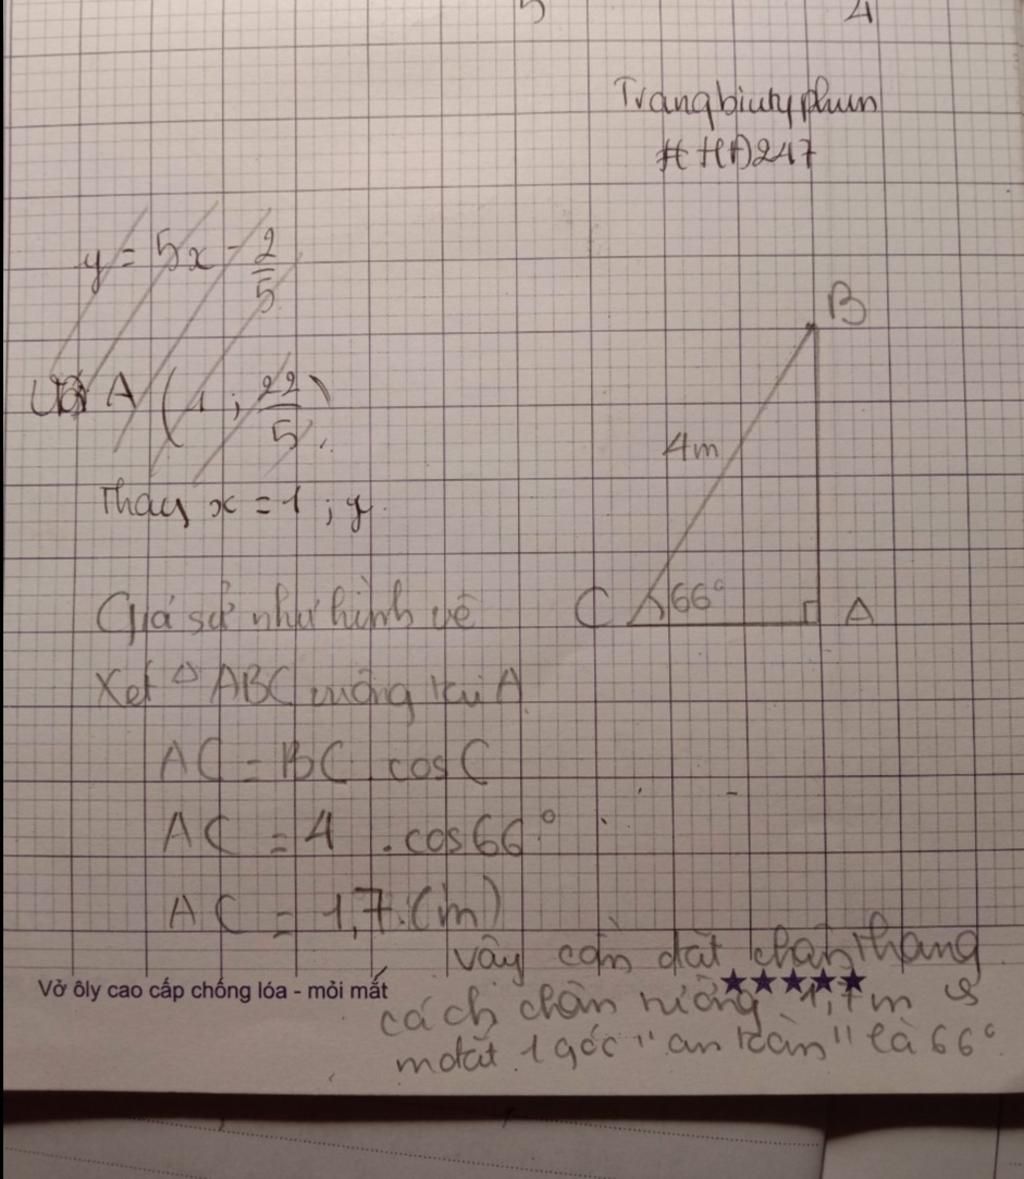 5 4
Trangbiutyphun
# HĐ247
y = 5x - 2/5
A (1; 22/5)
Thay x = 1; y
B
4m
C 66° A
Giả sử như hình vẽ
Xét △ ABC vuông tại A
AC = BC cos C
AC = 4 . cos 66°
AC = 1,7 (m)
Vậy cần đặt chân thang
Vở ôly cao cấp chống lóa - mỏi mắt ★★★★★
cách chân tường 1,7m
mđất 1 góc "an toàn" là 66°